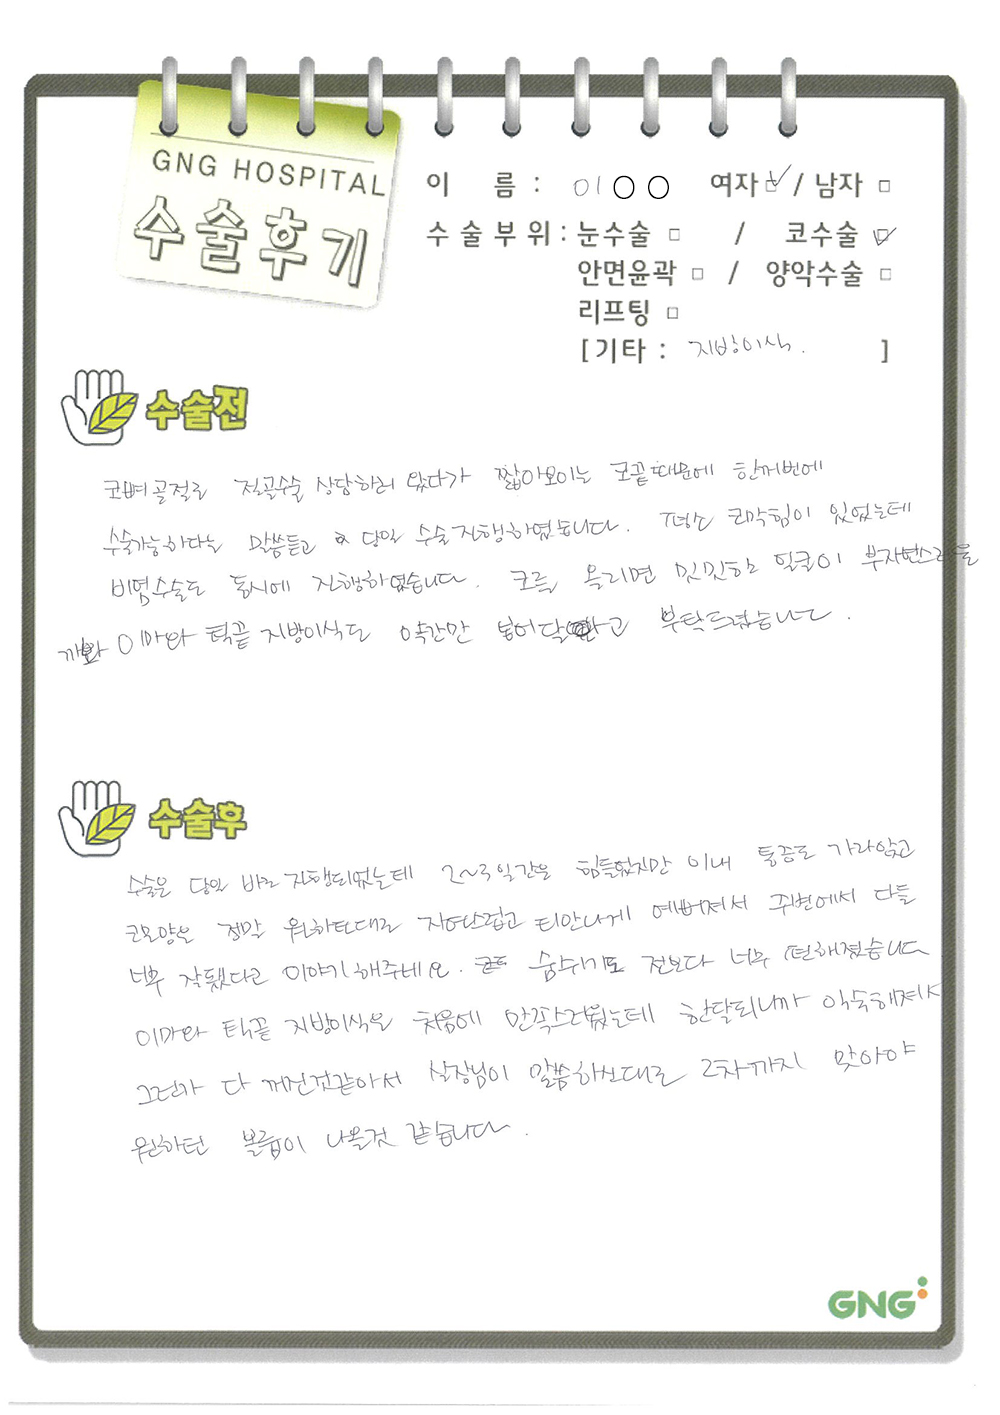 GNG HOSPITAL
수술후기
이 름 : 이○○ 여자 / 남자
수술부위 : 눈수술 / 코수술
안면윤곽 / 양악수술
리프팅
[기타 : 지방이식. ]
수술전
코뼈골절로 절골수술 상담하러 왔다가 짧아보이는 코끝때문에 한꺼번에
수술가능하다는 말씀듣고 당일 수술진행하였습니다. 평소 코막힘이 있었는데
비염수술도 동시에 진행하였습니다. 코를 올리면 밋밋한 얼굴이 부자연스러울
까봐 이마와 턱끝 지방이식도 약간만 넣어달라고 부탁드렸습니다.
수술후
수술은 당일 바로 진행되었는데 2~3일간은 힘들었지만 이내 통증도 가라앉고
코모양은 정말 원하던대로 자연스럽고 티안나게 예뻐져서 주변에서 다들
너무 잘됐다고 이야기해주네요. 숨쉬기도 전보다 너무 편해졌습니다
이마와 턱끝 지방이식은 처음에 만족스러웠는데 한달되니까 익숙해져서
그런가 다 꺼진것같아서 실장님이 말씀하신대로 2차까지 맞아야
원하던 볼륨이 나올것 같습니다.
GNG